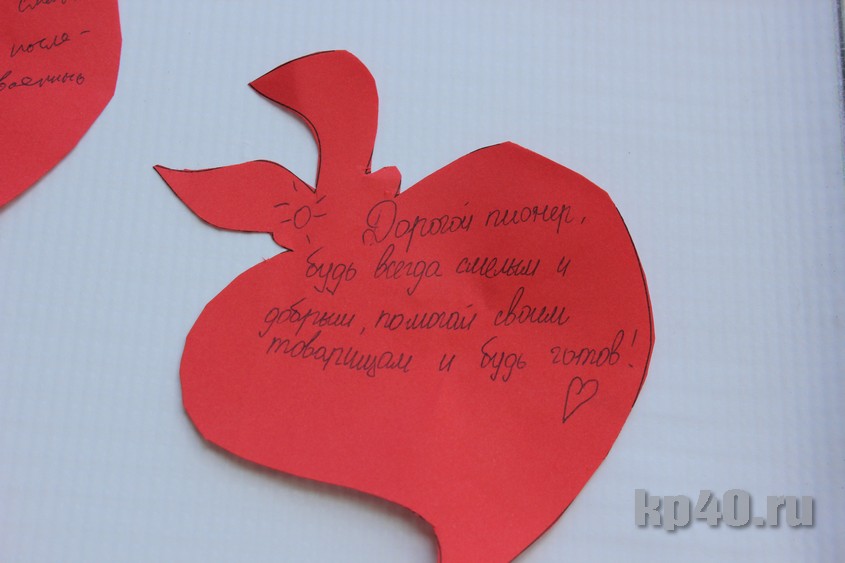 после-
Дорогой пионер,
будь всегда смелым и
добрым, помогай своим
товарищам и будь готов!
kp40.ru